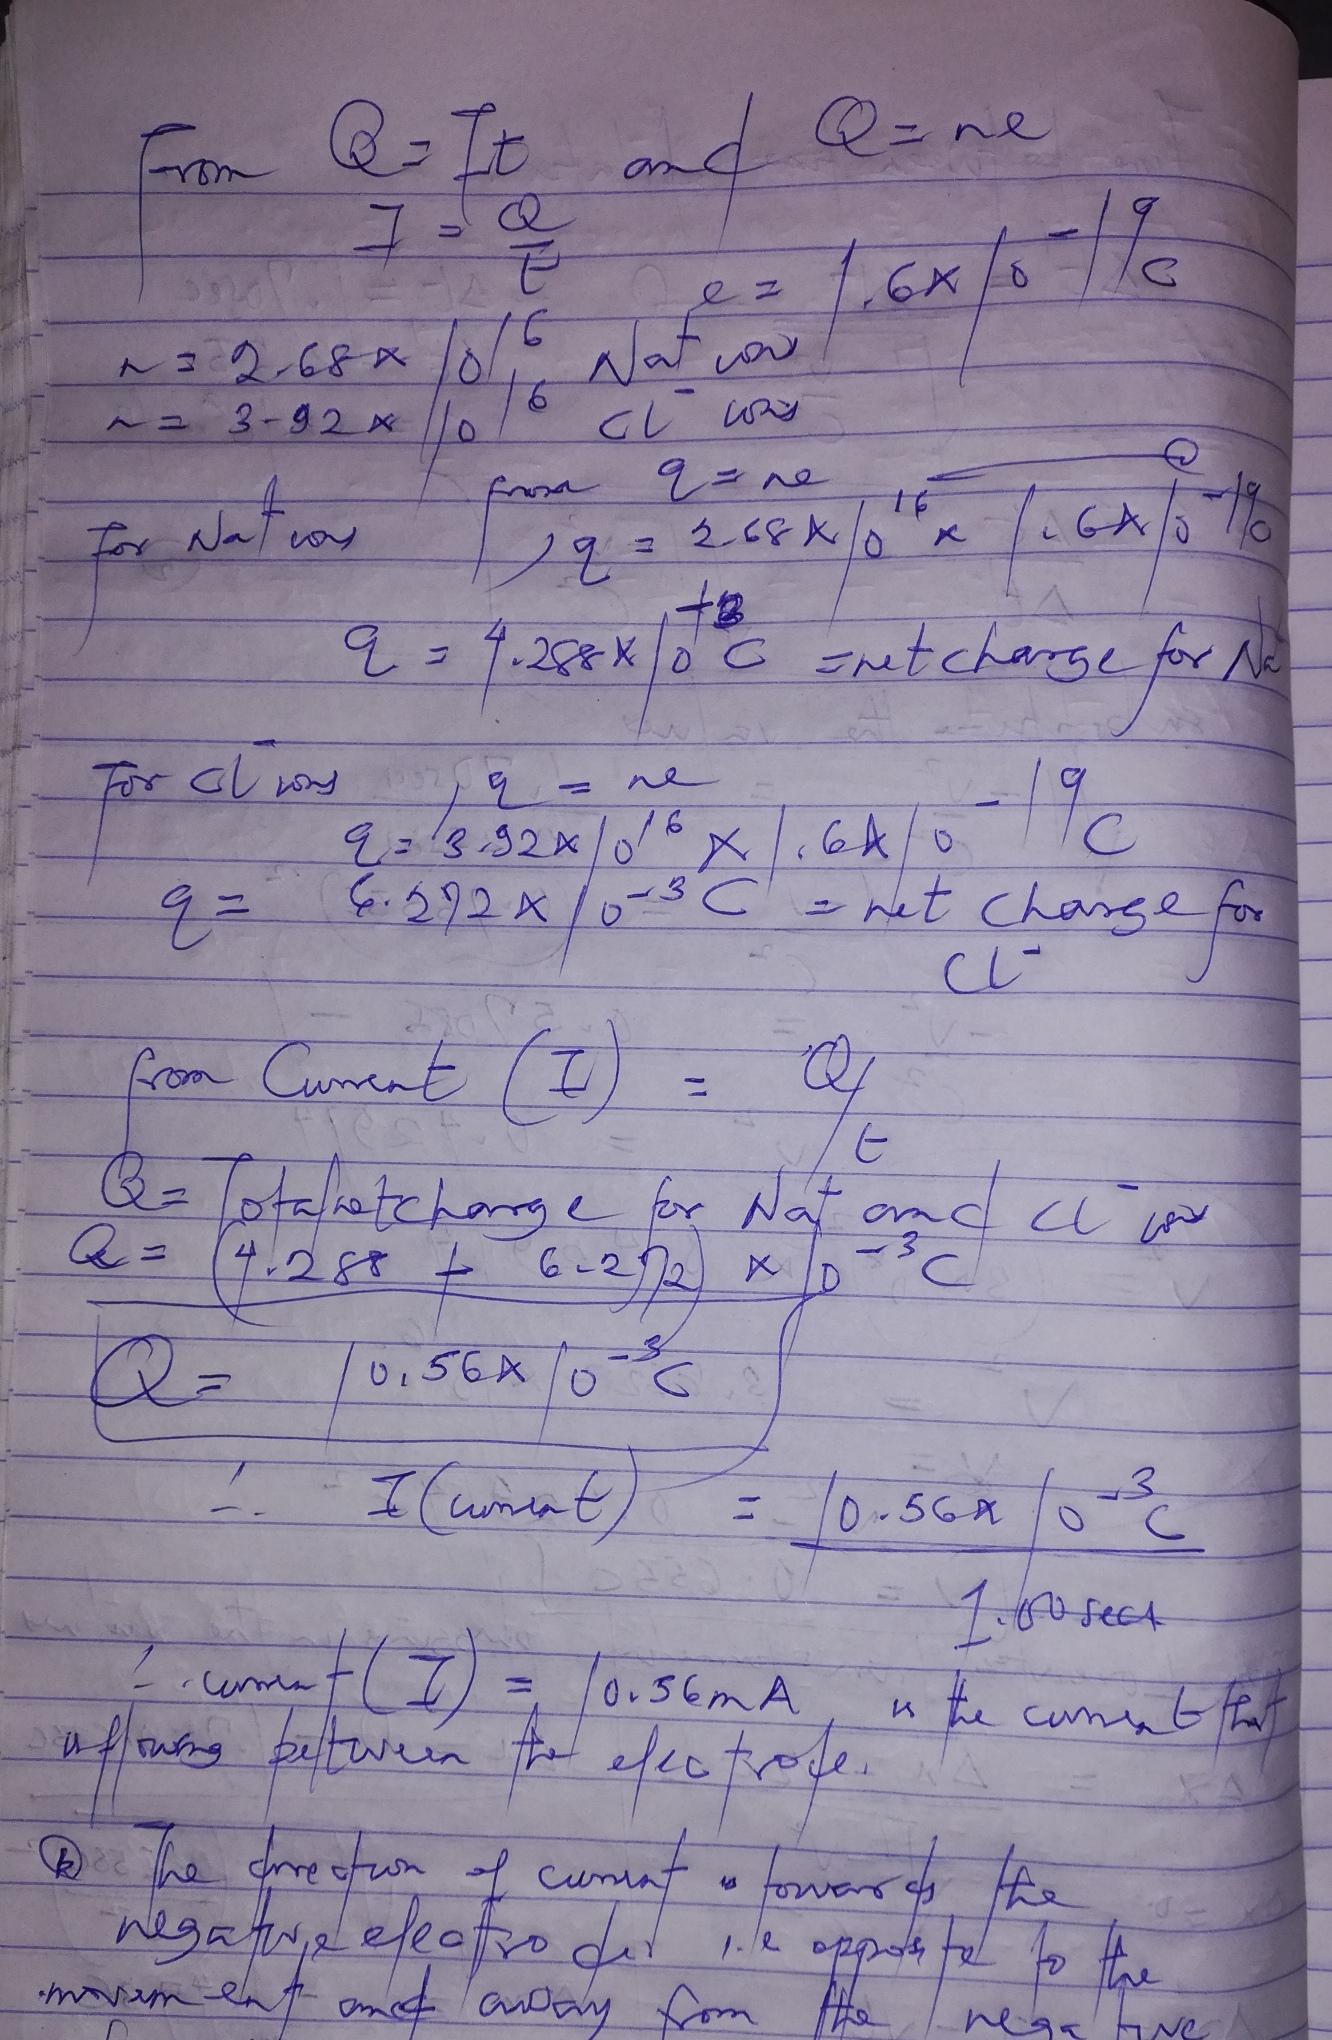 From Q = It and Q = ne
I = Q/t
e = 1.6x10^-19 C
n = 2.68x10^16 Na+ ions
n = 3.92x10^16 Cl- ions
from q = ne
For Na+ ions, q = 2.68x10^16 x 1.6x10^-19 C
q = 4.288x10^-3 C = net charge for Na
For Cl- ions, q = ne
q = 3.92x10^16 x 1.6x10^-19 C
q = 6.272x10^-3 C = net charge for
Cl-
from Current (I) = Q/t
Q = Total net charge for Na+ and Cl- ions
Q = (4.288 + 6.272) x 10^-3 C
Q = 10.56x10^-3 C
∴ I (current) = 10.56x10^-3 C
1.00 sec
∴ current (I) = 10.56mA is the current that
is flowing between the electrode.
(b) The direction of current is towards the
negative electrode i.e opposite to the
movement and away from the negative